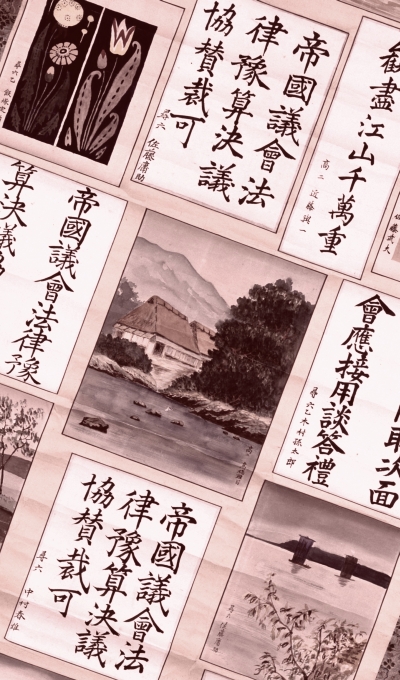 帝國議會法
律豫算決議
協賛裁可
尋六 佐藤庸助
盡江山千萬重
高二 近藤與一
佐藤武夫
帝國議會法律豫
算決議協
會應接用談答禮
次面
尋六乙 木村孫太郎
帝國議會法
律豫算決議
協賛裁可
尋六 中村春雄